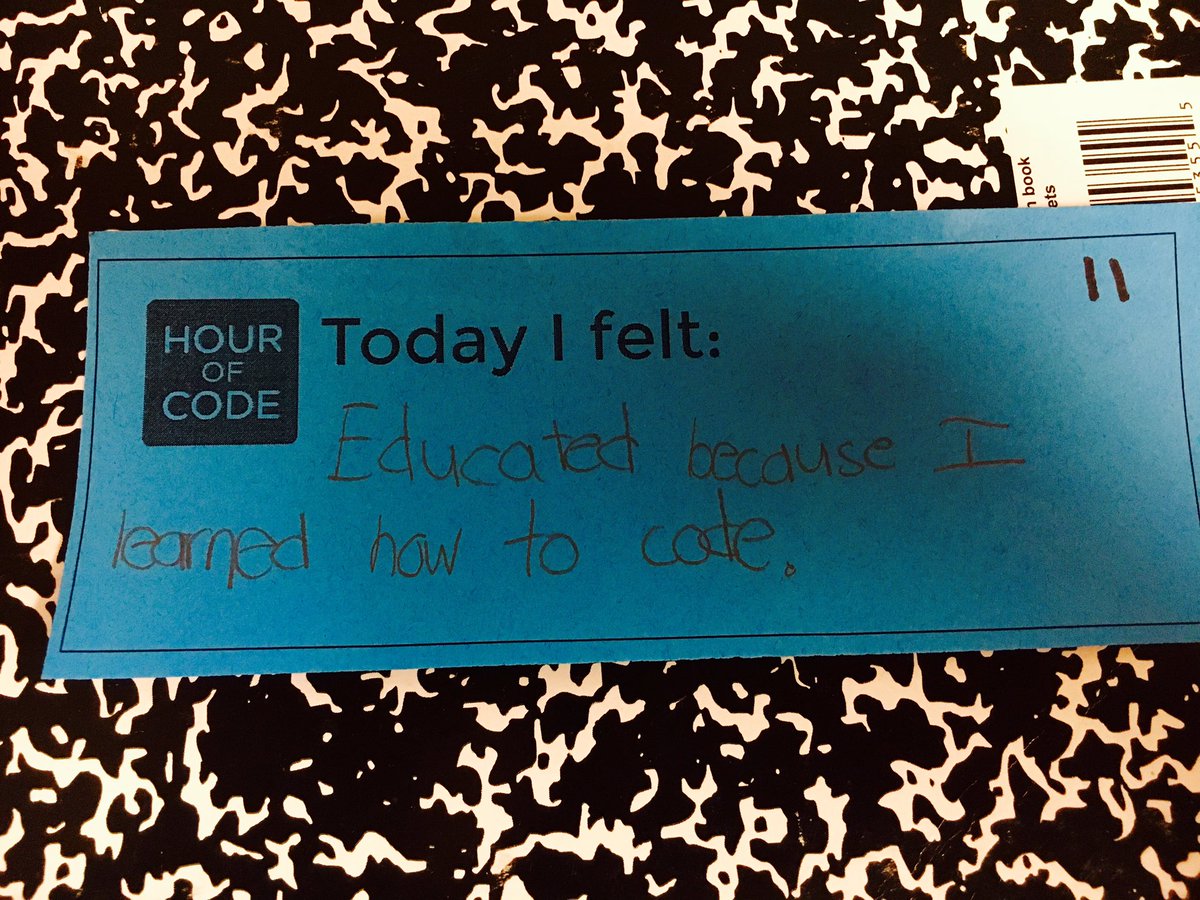 n book
ets
5
11
HOUR
OF
CODE
Today I felt:
Educated because I
learned how to code.